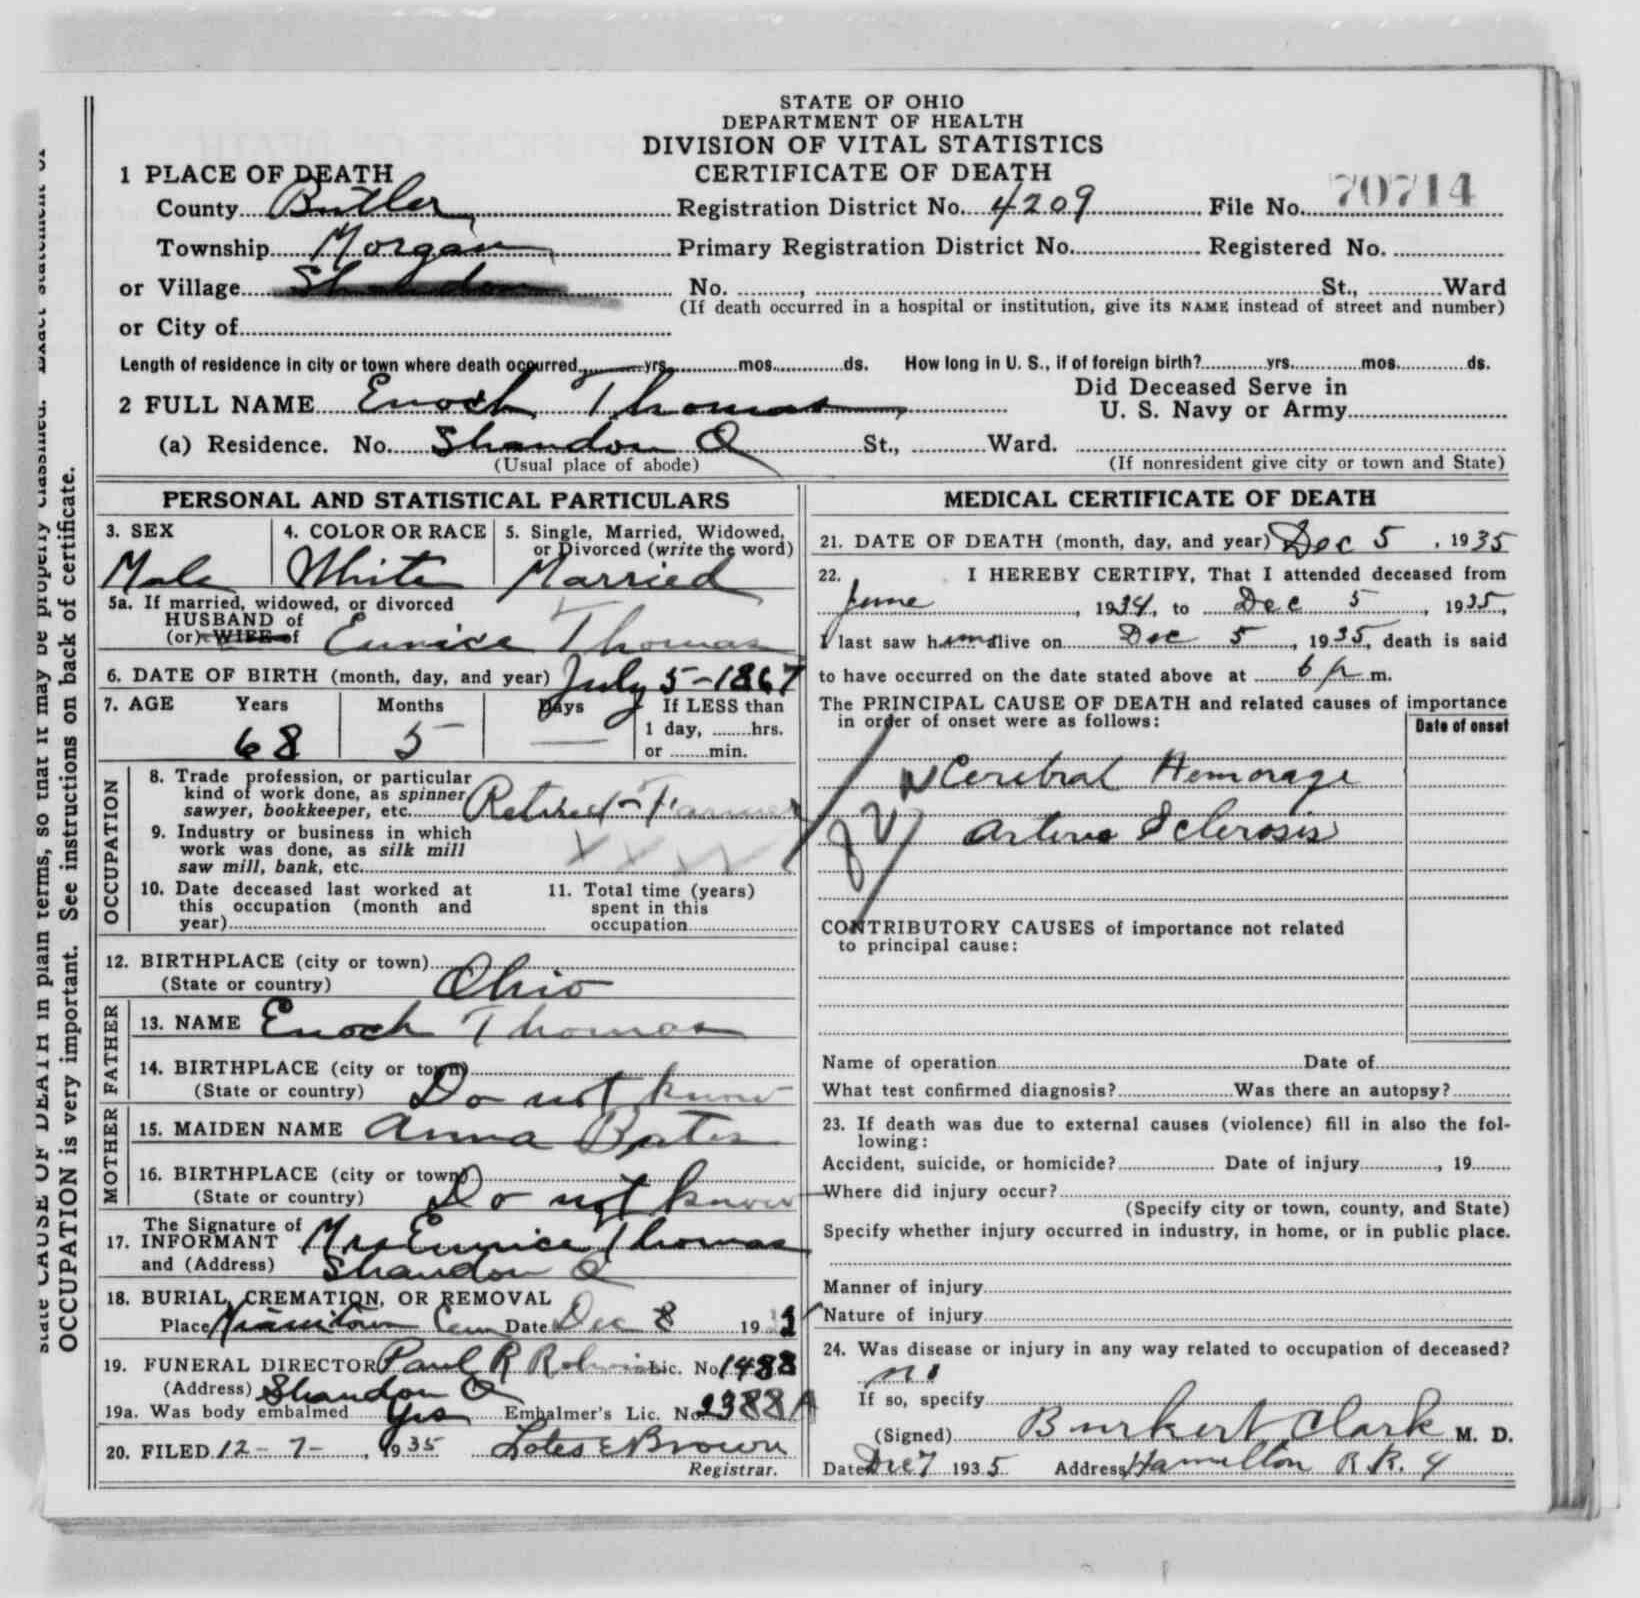 STATE OF OHIO
DEPARTMENT OF HEALTH
DIVISION OF VITAL STATISTICS
CERTIFICATE OF DEATH
1 PLACE OF DEATH
County Butler Registration District No. 4209 File No. 70714
Township Morgan Primary Registration District No. Registered No.
or Village Shandon No. , St., Ward
(If death occurred in a hospital or institution, give its NAME instead of street and number)
or City of
Length of residence in city or town where death occurred, yrs. mos. ds. How long in U. S., if of foreign birth? yrs. mos. ds.
2 FULL NAME Enoch Thomas Did Deceased Serve in U. S. Navy or Army
(a) Residence. No. Shandon O St., Ward.
(Usual place of abode) (If nonresident give city or town and State)
PERSONAL AND STATISTICAL PARTICULARS
3. SEX 4. COLOR OR RACE 5. Single, Married, Widowed, or Divorced (write the word)
Male White Married
5a. If married, widowed, or divorced
HUSBAND of
(or) WIFE of Eunice Thomas
6. DATE OF BIRTH (month, day, and year) July 5-1867
7. AGE Years Months Days If LESS than
1 day, hrs.
68 5 — or min.
OCCUPATION
8. Trade profession, or particular
kind of work done, as spinner
sawyer, bookkeeper, etc. Retired-Farmer
9. Industry or business in which
work was done, as silk mill
saw mill, bank, etc. XXXX
10. Date deceased last worked at
this occupation (month and
year)
11. Total time (years)
spent in this
occupation
12. BIRTHPLACE (city or town)
(State or country) Ohio
FATHER
13. NAME Enoch Thomas
14. BIRTHPLACE (city or town)
(State or country) Do not know
MOTHER
15. MAIDEN NAME Anna Bates
16. BIRTHPLACE (city or town)
(State or country) Do not know
The Signature of
17. INFORMANT Mrs Eunice Thomas
and (Address) Shandon O
18. BURIAL, CREMATION, OR REMOVAL
Place Miamitown Cem Date Dec 8 19
19. FUNERAL DIRECTOR Paul R Lic. No. 1488
(Address) Shandon O
19a. Was body embalmed Yes Embalmer's Lic. No. 2388A
20. FILED 12-7-, 1935 Lotes E Brown
Registrar.
MEDICAL CERTIFICATE OF DEATH
21. DATE OF DEATH (month, day, and year) Dec 5, 1935
22. I HEREBY CERTIFY, That I attended deceased from
June, 1934, to Dec 5, 1935,
I last saw him alive on Dec 5, 1935, death is said
to have occurred on the date stated above at 6 p. m.
The PRINCIPAL CAUSE OF DEATH and related causes of importance
in order of onset were as follows:
Date of onset
Cerebral Hemorage
82
Arterio Sclerosis
CONTRIBUTORY CAUSES of importance not related
to principal cause:
Name of operation Date of
What test confirmed diagnosis? Was there an autopsy?
23. If death was due to external causes (violence) fill in also the fol-
lowing:
Accident, suicide, or homicide? Date of injury , 19
Where did injury occur?
(Specify city or town, county, and State)
Specify whether injury occurred in industry, in home, or in public place.
Manner of injury
Nature of injury
24. Was disease or injury in any way related to occupation of deceased?
no
If so, specify
(Signed) Burkert Clark M. D.
Date Dec 7 1935 Address Hamilton R.R. 4
state CAUSE OF DEATH in plain terms, so that it may be properly classified. Exact statement of
OCCUPATION is very important. See instructions on back of certificate.